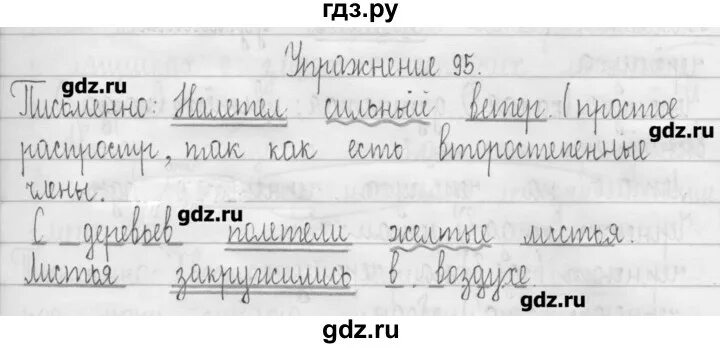 гдз.ру
Упражнение 95.
gdz.ru
gdz.ru
Письменно: Налетел сильный ветер. (простое
gdz.ru
распростр, так как есть второстепенные
члены.
gdz.ru
С деревьев полетели желтые листья.
Листья закружились в воздухе
gdz.ru
gdz.ru